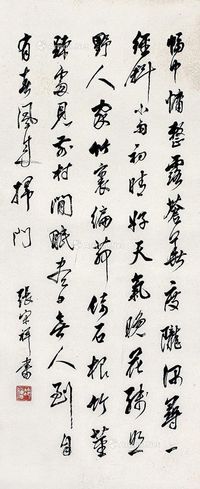 幅巾慵整露蒼華度隴深尋一
徑斜小雨初晴好天氣晚花殘照
野人家竹裏編茅倚石根竹莖
疎處見前村閒眠盡日無人到自
有春風來掃門
張宗祥書